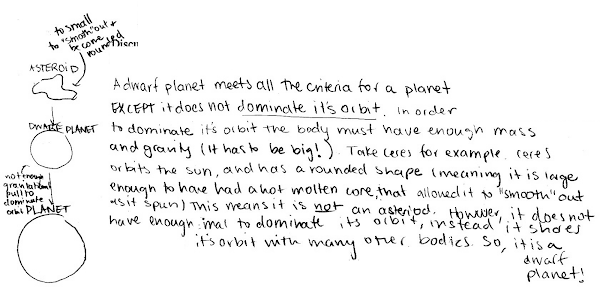 to small
to "smooth" out +
become
rounded
ASTEROID
DWARF PLANET
not enough
gravitational
pull to
dominate
orbit
PLANET
A dwarf planet meets all the criteria for a planet
EXCEPT it does not dominate it's orbit. In order
to dominate it's orbit the body must have enough mass
and gravity (It has to be big!). Take ceres for example. ceres
orbits the sun, and has a rounded shape (meaning it is large
enough to have had a hot molten core, that allowed it to "smooth" out
as it spun) This means it is not an asteriod. However, it does not
have enough to dominate its orbit, instead it shares
it's orbit with many other bodies. So, it is a
dwarf
planet!